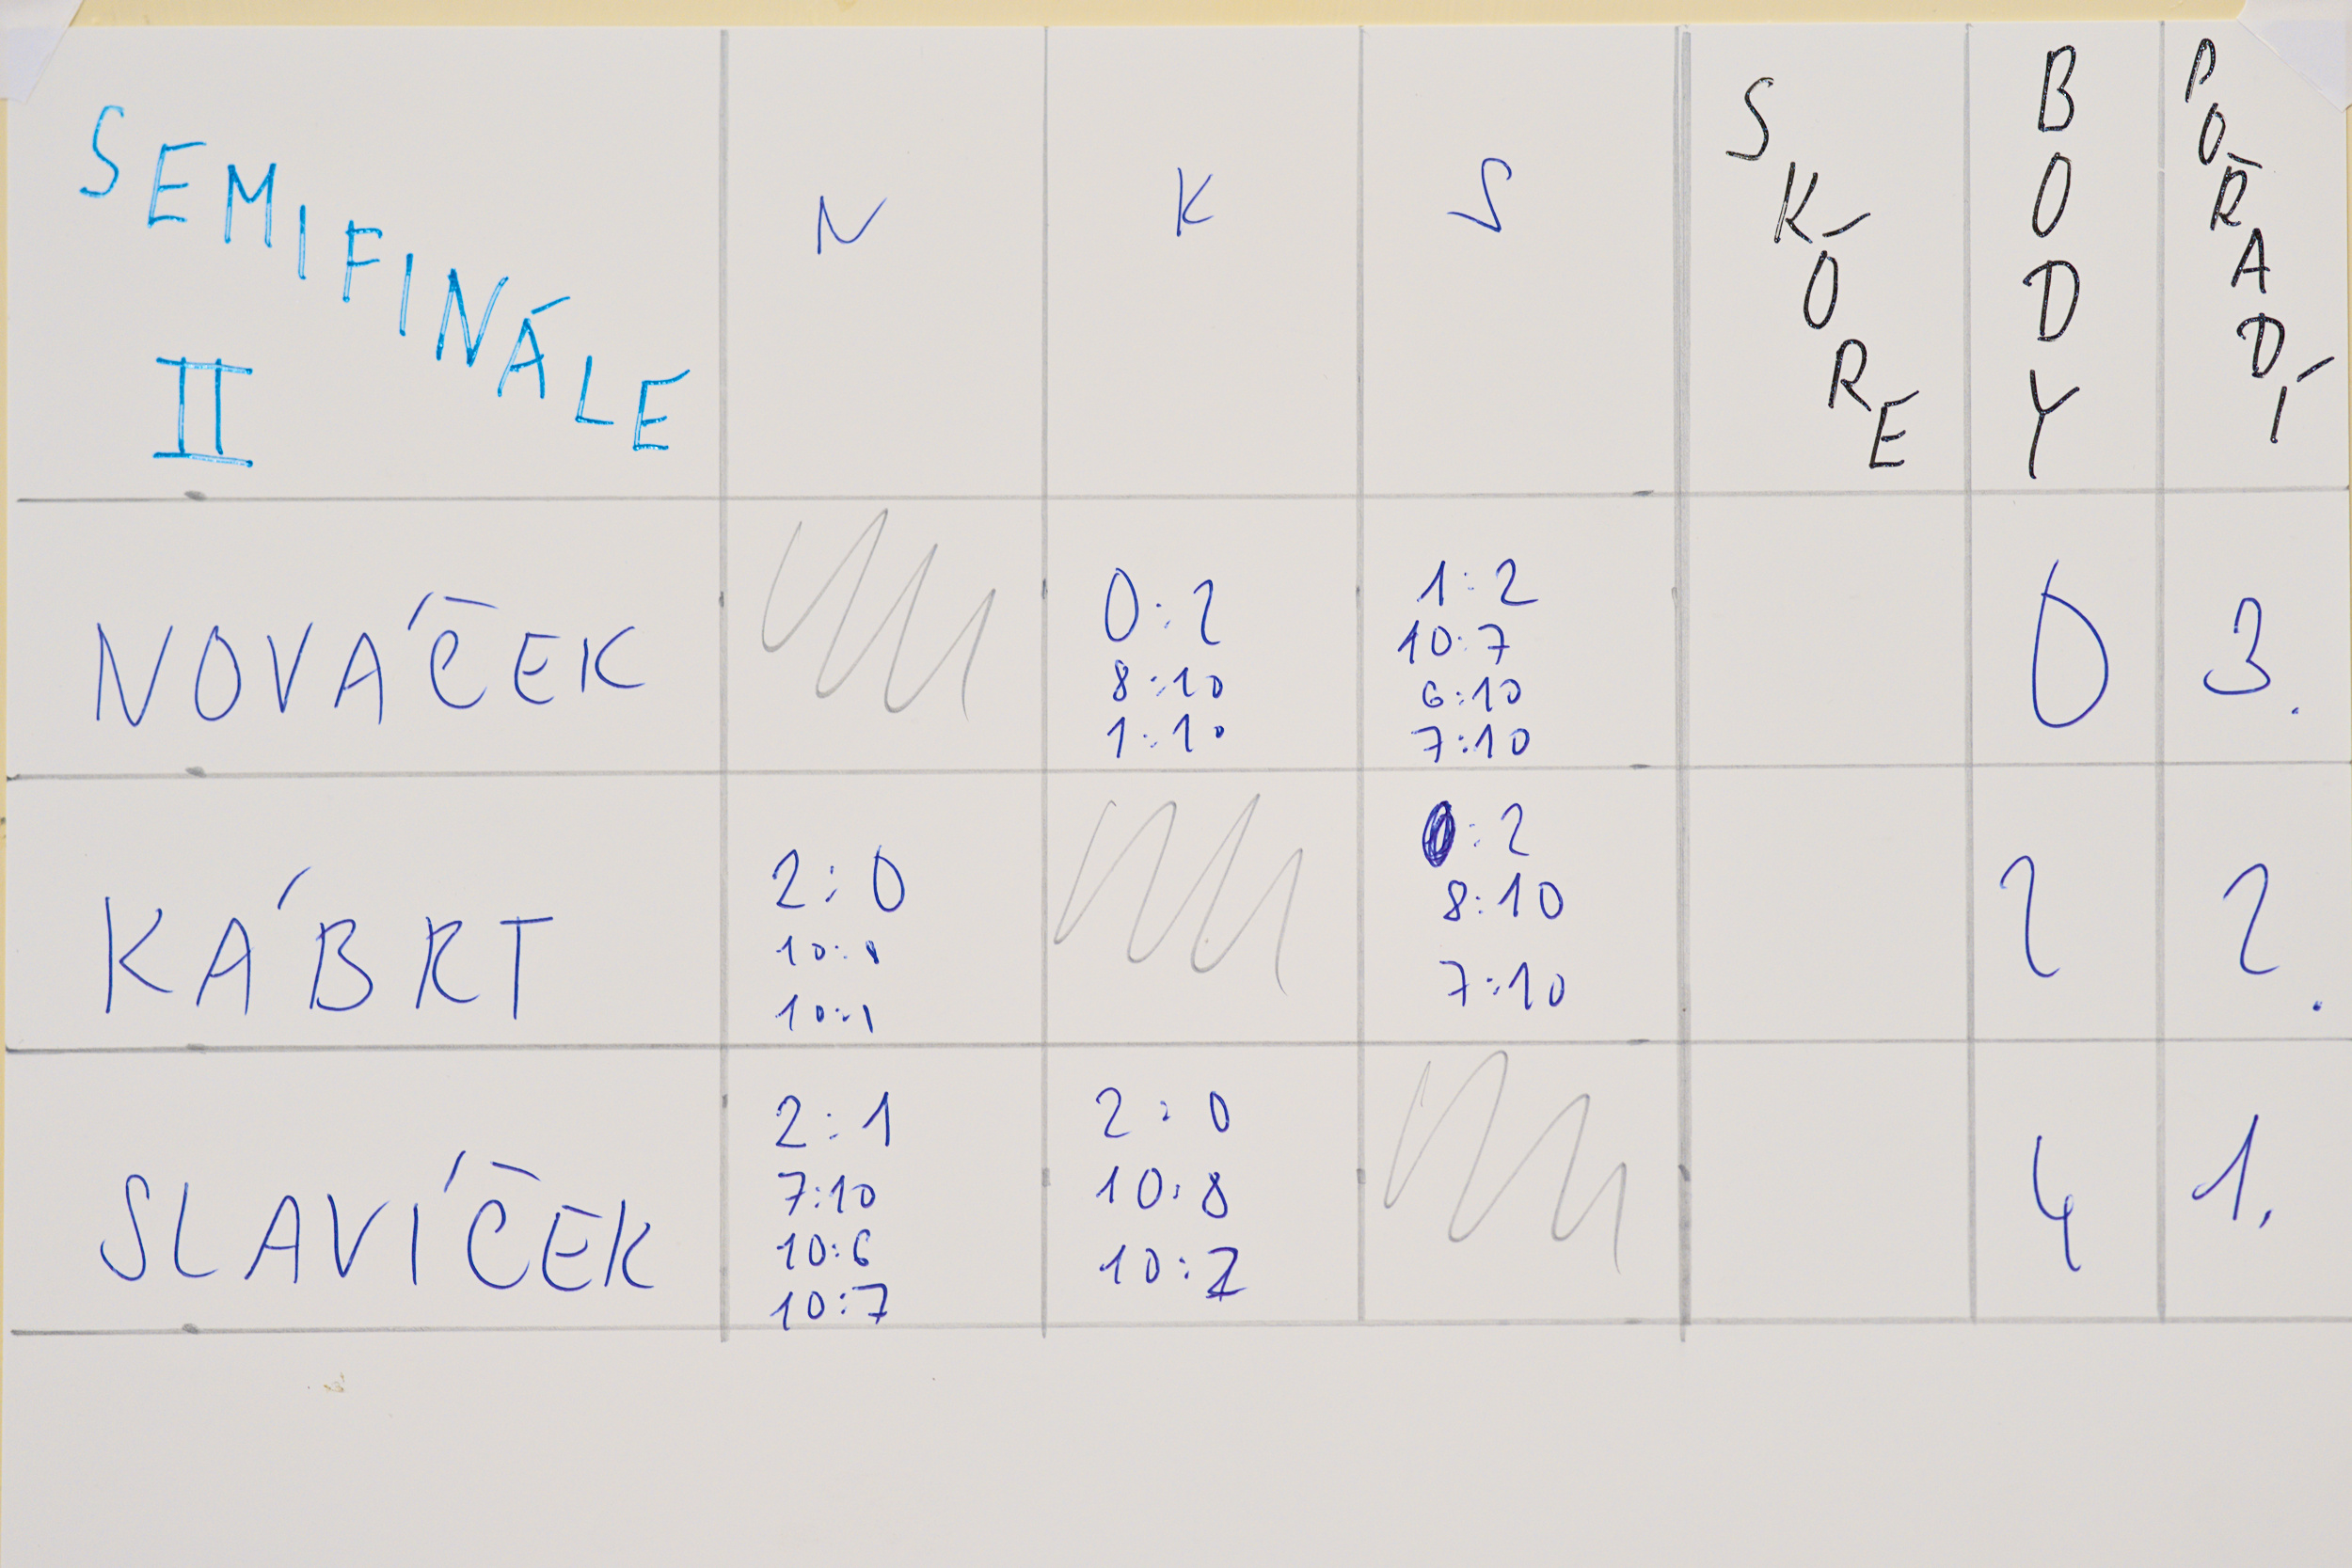 SEMIFINÁLE II N K S SKÓRE BODY POŘADÍ
NOVÁČEK 0:2 1:2 0 3.
8:10 10:7
1:10 6:10
7:10
KÁBRT 2:0 0:2 2 2.
10: 8:10
10:1 7:10
SLAVÍČEK 2:1 2:0 4 1.
7:10 10:8
10:6 10:
10:7